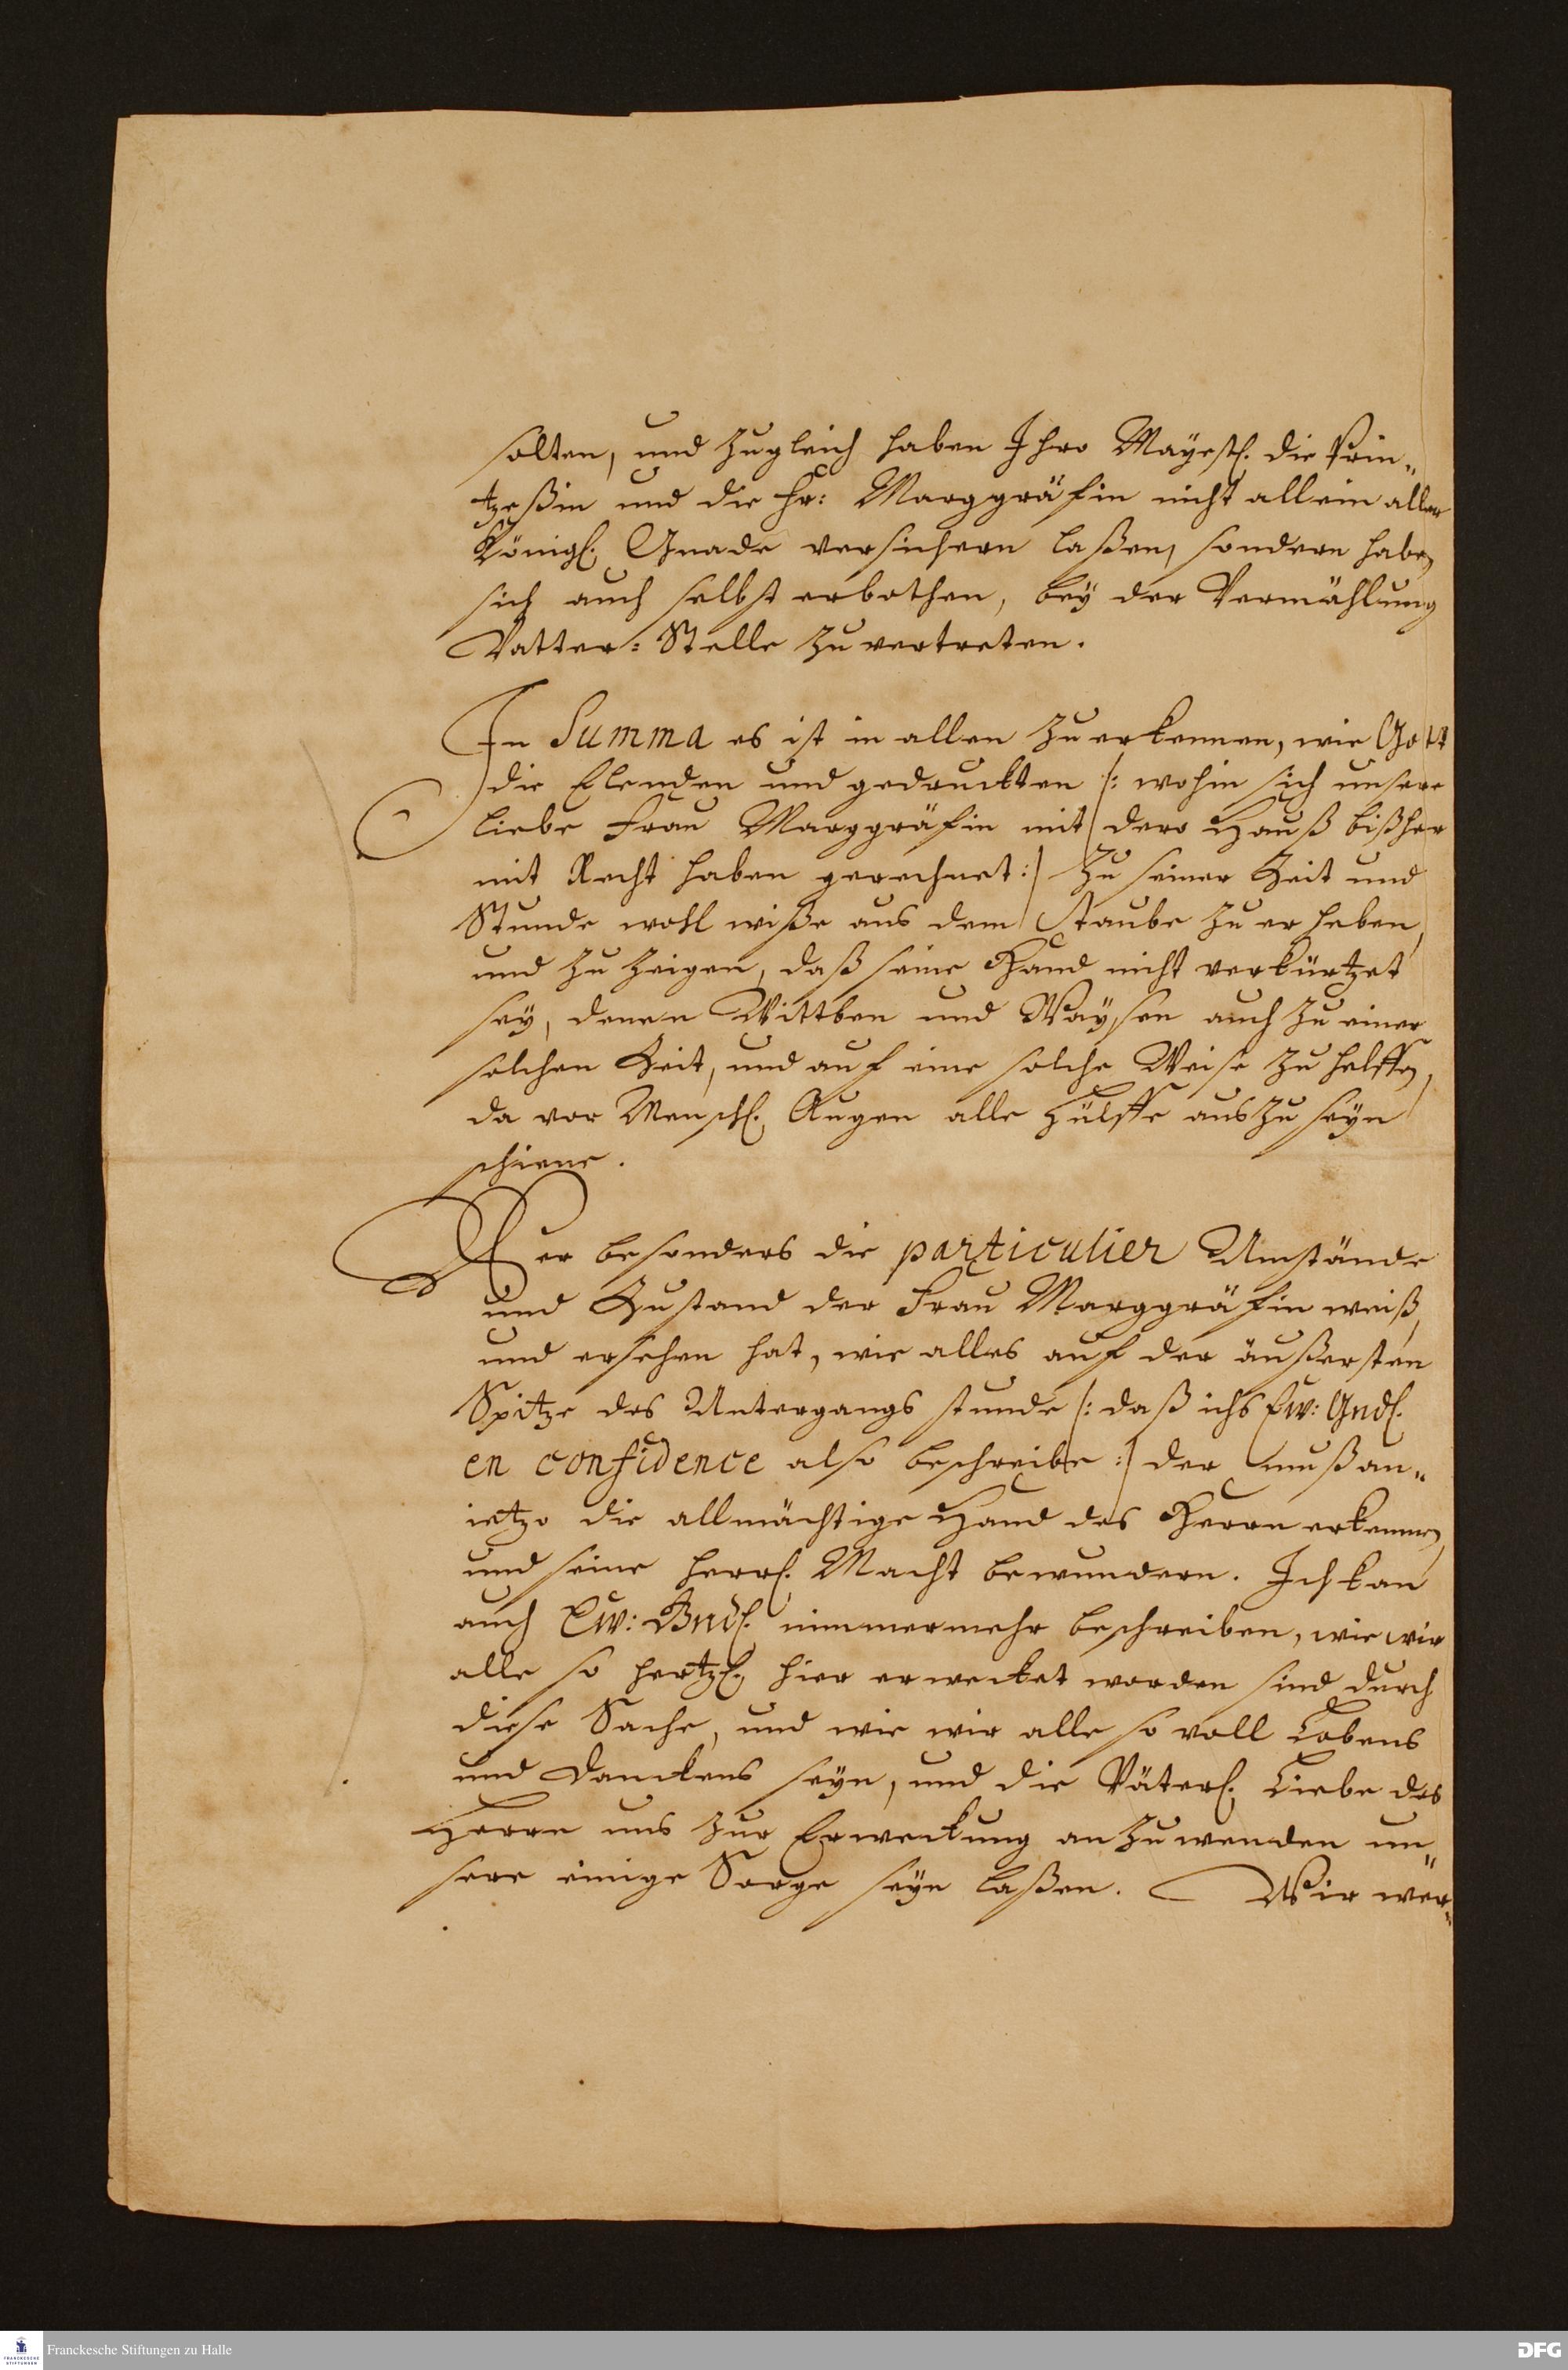 solten, und zugleich haben Ihro Mayest. die Prin„
tzeßin und die Fr: Marggräfin nicht allein aller
Königl. Gnade versichern laßen, sondern haben
sich auch selbst erbothen, bey der Vermählung
Vatter=Stelle zu vertreten.
In Summa es ist in allen zu erkennen, wie Gott
die Elenden und gedruckten /: wohin sich unsere
liebe Frau Marggräfin mit dero Hauß bißher
mit Recht haben gerechnet :/ zu seiner Zeit und
Stunde wohl wiße aus dem Staube zu erheben,
und zu zeigen, daß seine Hand nicht verkürtzet
sey, denen Wittben und Waysen auch zu einer
solchen Zeit, und auf eine solche Weise zu helffen,
da vor Menschl. Augen alle Hülffe aus zu seyn
schiene.
Wer besonders die particulier Umstände
und Zustand der Frau Marggräfin weiß,
und ersehen hat, wie alles auf der äußersten
Spitze des Untergangs stunde /: daß ichs Ew: Gndl.
en confidence also beschreibe :/ der muß an„
ietzo die allmächtige Hand des Herrn erkennen,
und seine herrl. Macht bewundern. Ich kan
auch Ew: Gndl. nimmermehr beschreiben, wie wir
alle so hertzl. hier erwecket worden sind durch
diese Sache, und wie wir alle so voll Lobens
und Danckens seyn, und die Väterl. Liebe des
Herrn uns zur Erweckung anzuwenden un„
sere einige Sorge seyn laßen. Wir wer„
Franckesche Stiftungen zu Halle
FRANCKESCHE STIFTUNGEN
DFG